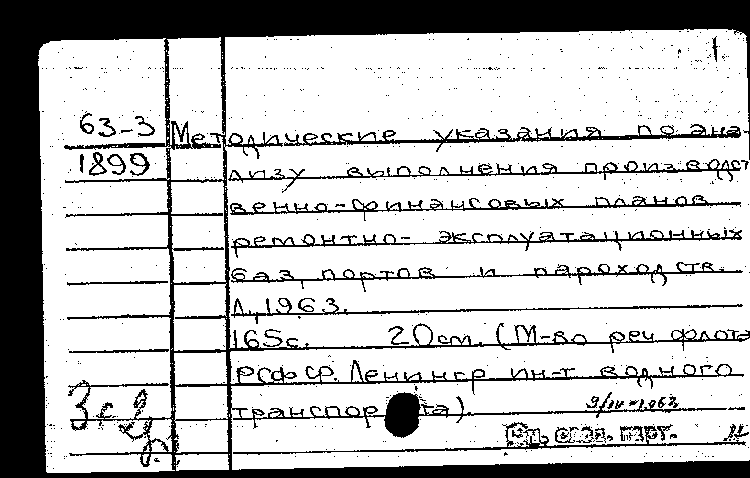 63-3 Методические указания по ана-
1899 лизу выполнения производст
венно-финансовых планов
ремонтно-эксплуатационных
баз, портов и пароходств.
Л., 1963.
165с. 20см. (М-во реч флота
РСФСР. Ленингр ин-т водного
транспорта).
9/IV-1963